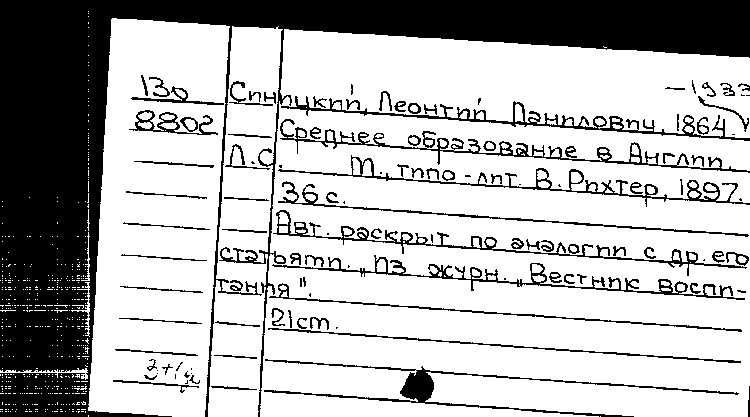 –1933
130 Синицкий, Леонтий Данилович, 1864.
880г Среднее образование в Англии.
Л.С. М., типо-лит. В. Рихтер, 1897.
36 с.
Авт. раскрыт по аналогии с др. его
статьями. „Из журн. „Вестник воспи-
тания".
21 cm.